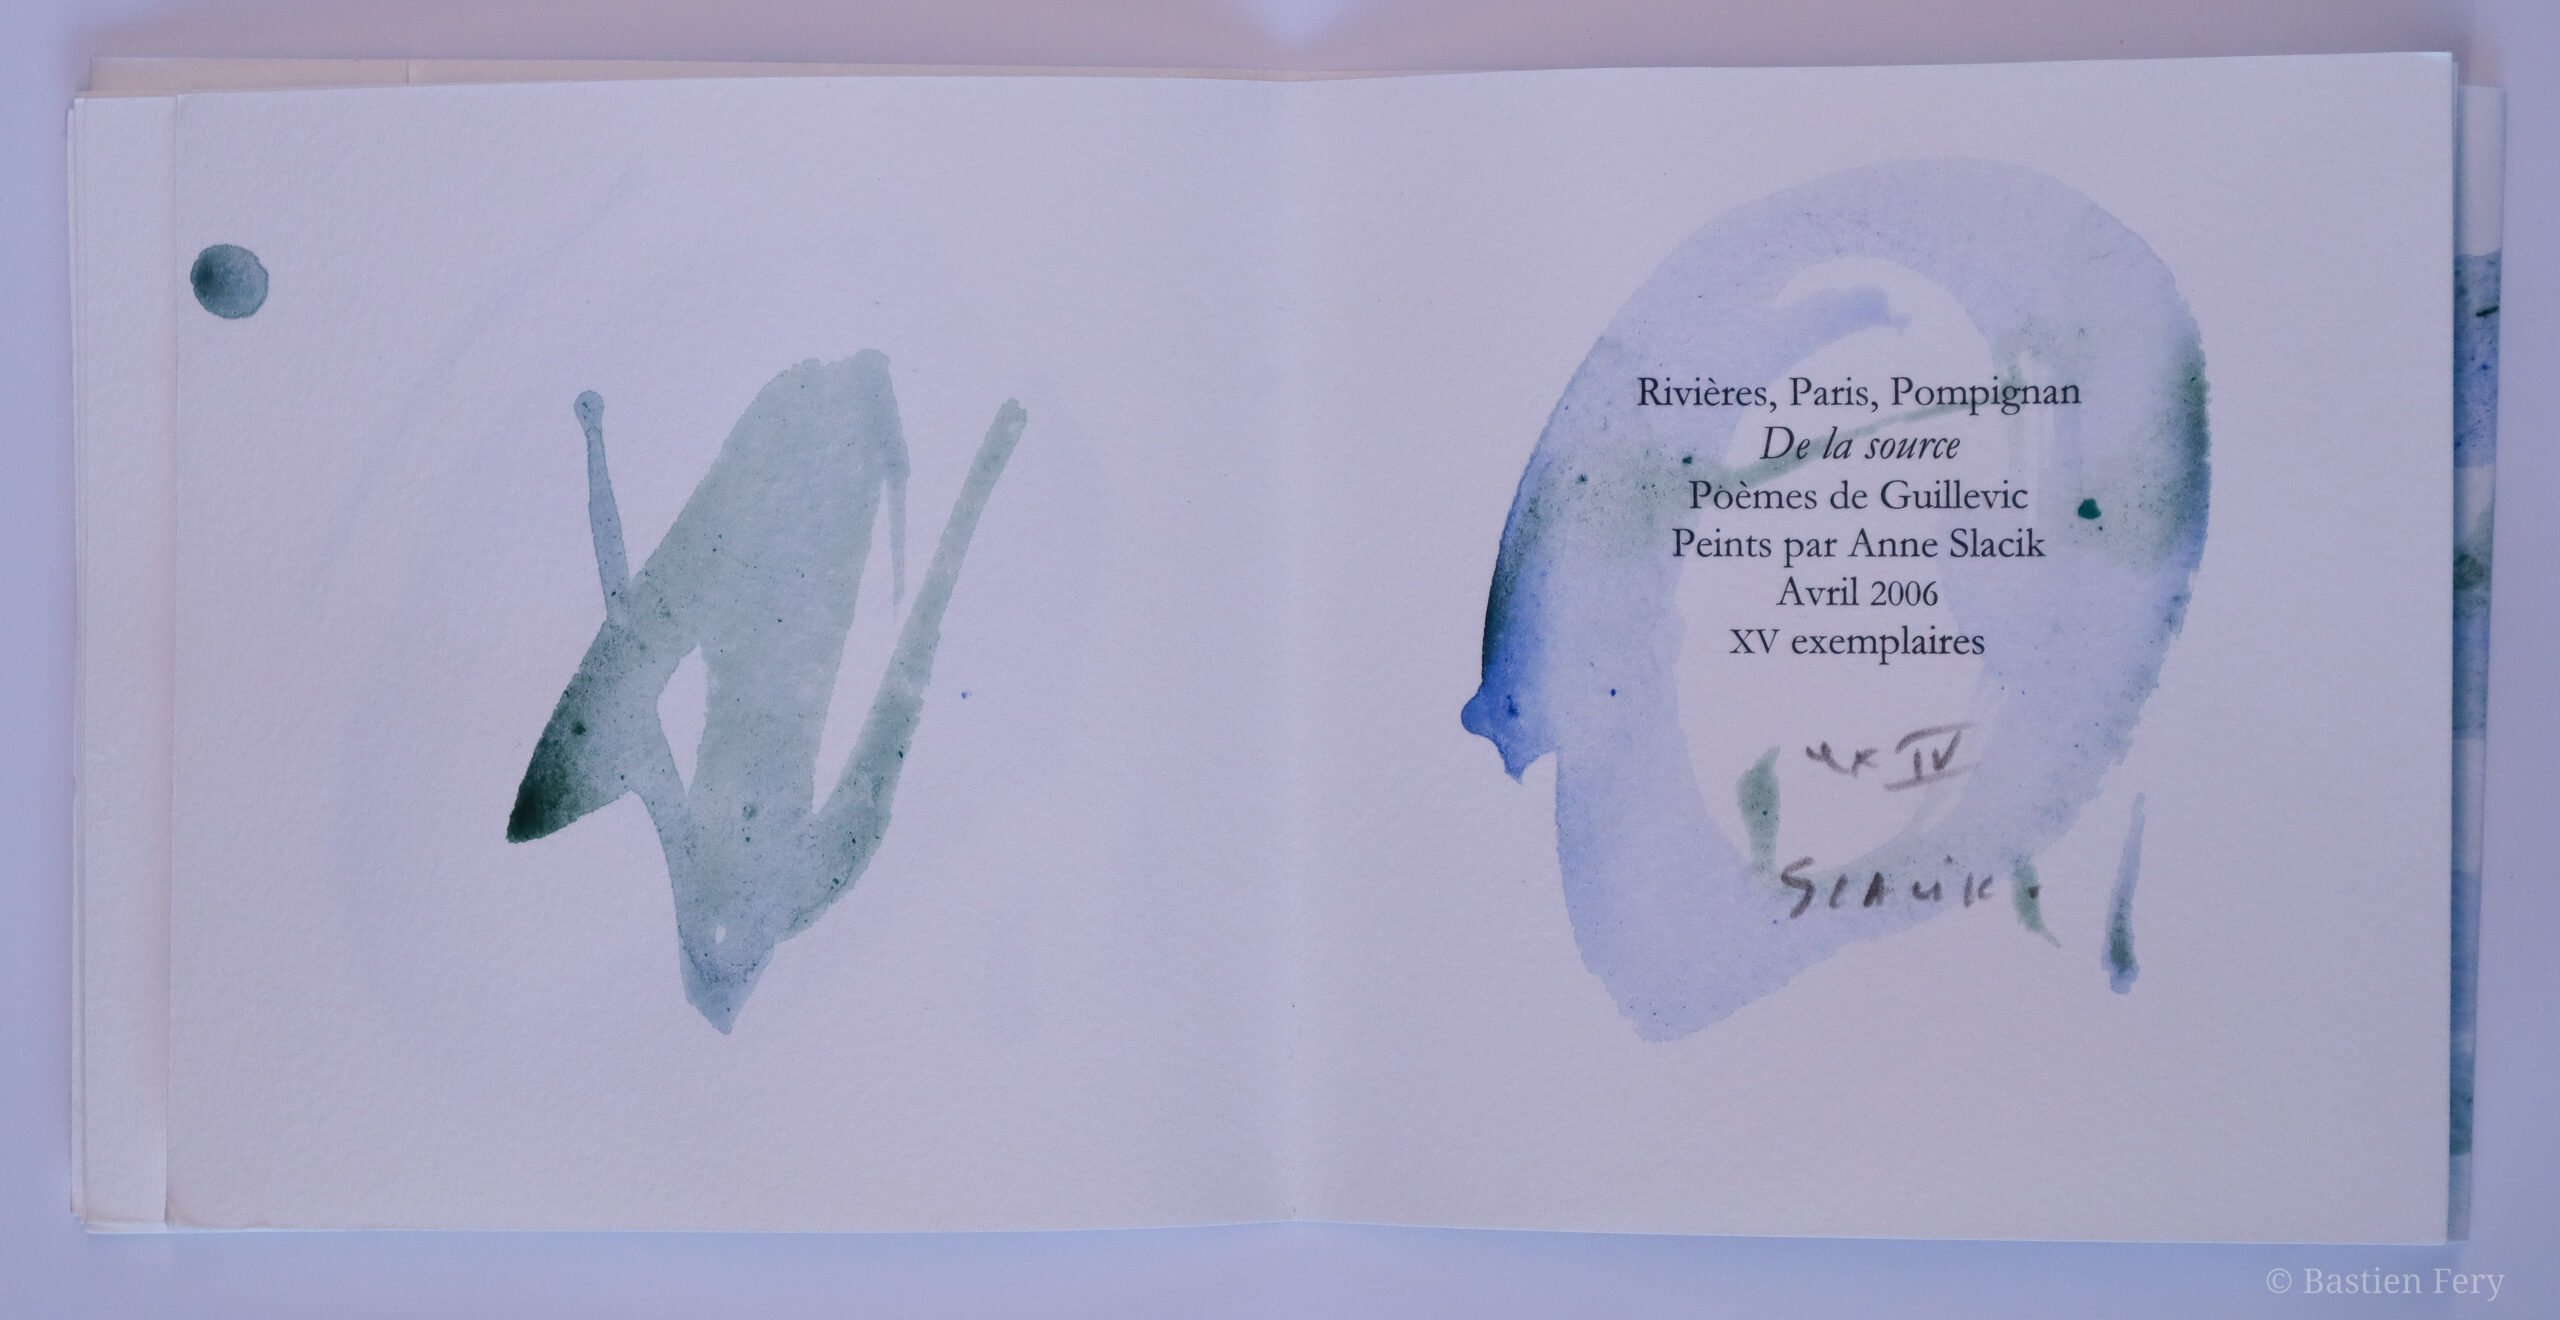 Rivières, Paris, Pompignan
De la source
Poèmes de Guillevic
Peints par Anne Slacik
Avril 2006
XV exemplaires
ex IV
Slacik.
© Bastien Fery